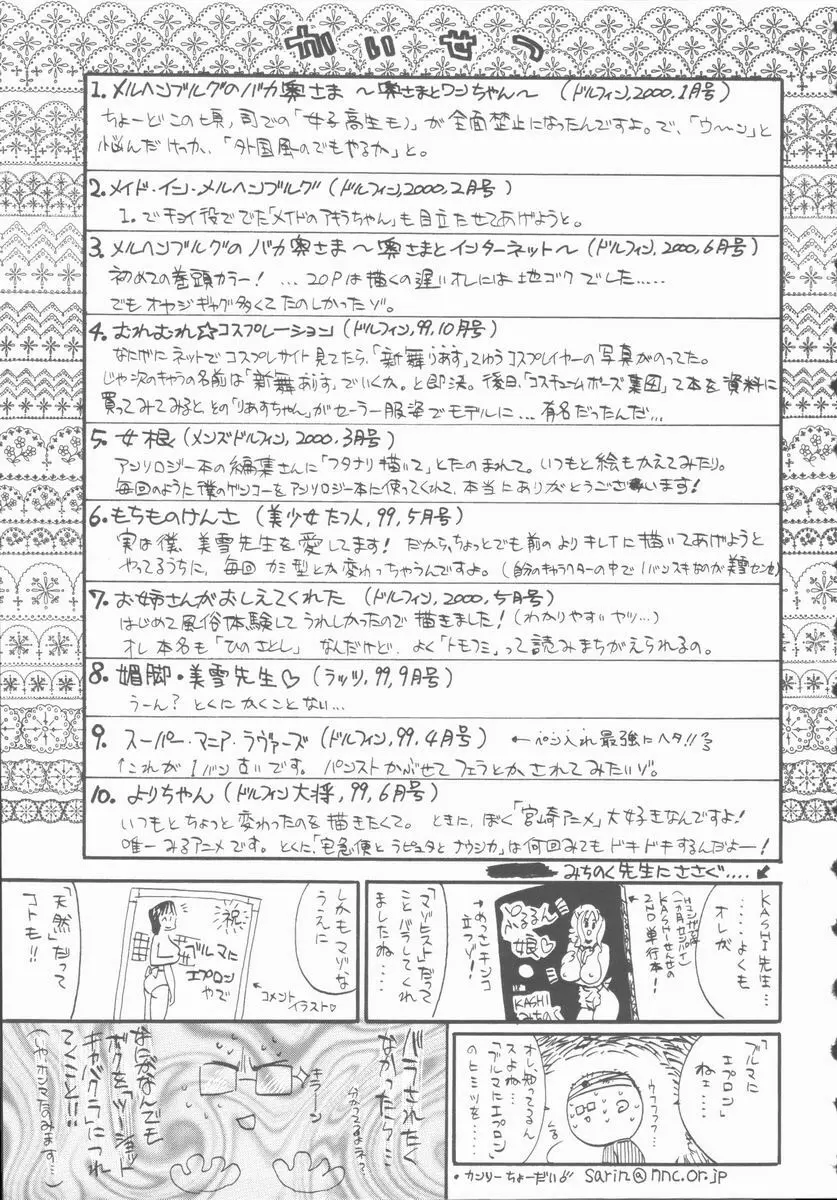 かいせつ
1. メルヘンブルグのバカ奥さま 〜奥さまとワンちゃん〜 (ドルフィン,2000,1月号)
ちょーどこの頃、司での「女子高生モノ」が全面禁止になったんですよ。で、「ウ〜ン」と
悩んだけっか、「外国風のでもやるか」と。
2. メイド・イン・メルヘンブルグ (ドルフィン,2000,2月号)
1. でチョイ役ででた「メイドのアキラちゃん」も目立たせてあげようと。
3. メルヘンブルグのバカ奥さま 〜奥さまとインターネット〜 (ドルフィン,2000,6月号)
初めての巻頭カラー! ...20Pは描くの遅いオレには地ゴクでした......
でもオヤジギャグ多くてたのしかったゾ。
4. むれむれ☆コスプレーション (ドルフィン,99,10月号)
なにげにネットでコスプレサイト見てたら、「新舞りあす」てゆうコスプレイヤーの写真がのってた。
じゃ次のキャラの名前は「新舞ありす」でいくか。と即決。後日、「コスチュームポーズ集団」て本を資料に
買ってみてみると、その「りあすちゃん」がセーラー服姿でモデルに...有名だったんだ...
5. 女根 (メンズドルフィン,2000,3月号)
アンソロジー本の編集さんに「フタナリ描いて」とたのまれて。いつもと絵もかえてみたり。
毎回のように僕のゲンコーをアンソロジー本に使ってくれて、本当にありがとうございます!
6. もちものけんさ (美少女たつ人,99,5月号)
実は僕、美雪先生を愛してます! だから、ちょっとでも前のよりキレイに描いてあげようと
やってるうちに、毎回カミ型とか変わっちゃうんですよ。(自分のキャラクターの中で1バンスキなのが美雪センセ)
7. お姉さんがおしえてくれた (ドルフィン,2000,5月号)
はじめて風俗体験してうれしかったので描きました! (わかりやすいヤツ...)
オレ本名も「ひのさとし」なんだけど、よく「トモフミ」って読みまちがえられるの。
8. 媚脚・美雪先生♡ (ラッツ,99,9月号)
うーん? とくにかくことない...
9. スーパー・マニア・ラヴァーズ (ドルフィン,99,4月号) ←ペン入れ最強にヘタ!!
↑これが1バン古いです。パンストかぶせてフェラとか、されてみたいゾ。
10. よりちゃん (ドルフィン大将,99,6月号)
いつもとちょっと変わったのを描きたくて。ときに、ぼく「宮崎アニメ」大好きなんですよ!
唯一みるアニメです。とくに、「宅急便とラピュタとナウシカ」は何回みてもドキドキするんだよー!
みちのく先生にささぐ....
KASHI先生...
......よくも
オレが
KASHIせんせの
2ND単行本!
ぷるるん
娘♡
KASHI
みちのく
↑めっさチンコ
立つゾ!
「マゾヒスト」だって
ことバラしてくれ
ましたね...
しかもマゾな
うえに
祝
ブルマに
エプロン
やで
コメント
イラスト♡
「天然」だって
コトも!!
「ブルマに
エプロン」
ねェ...
ウフフフ...
オレ、知ってるん
スよね...
「ブルマにエプロン」
のヒミツを...
バラされたく
なかったら...
キラーン
分かってるよネェ?
なにがなんでも
ボクを「ツーショット
キャバクラ」につれ
てくこと!!!
(いやホンマたのみます...)
・カンソーちょーだい♪ sarin@nnc.or.jp